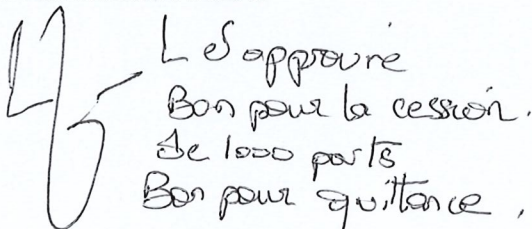 L et approuvé
Bon pour la cession.
de 1000 parts
Bon pour quittance.